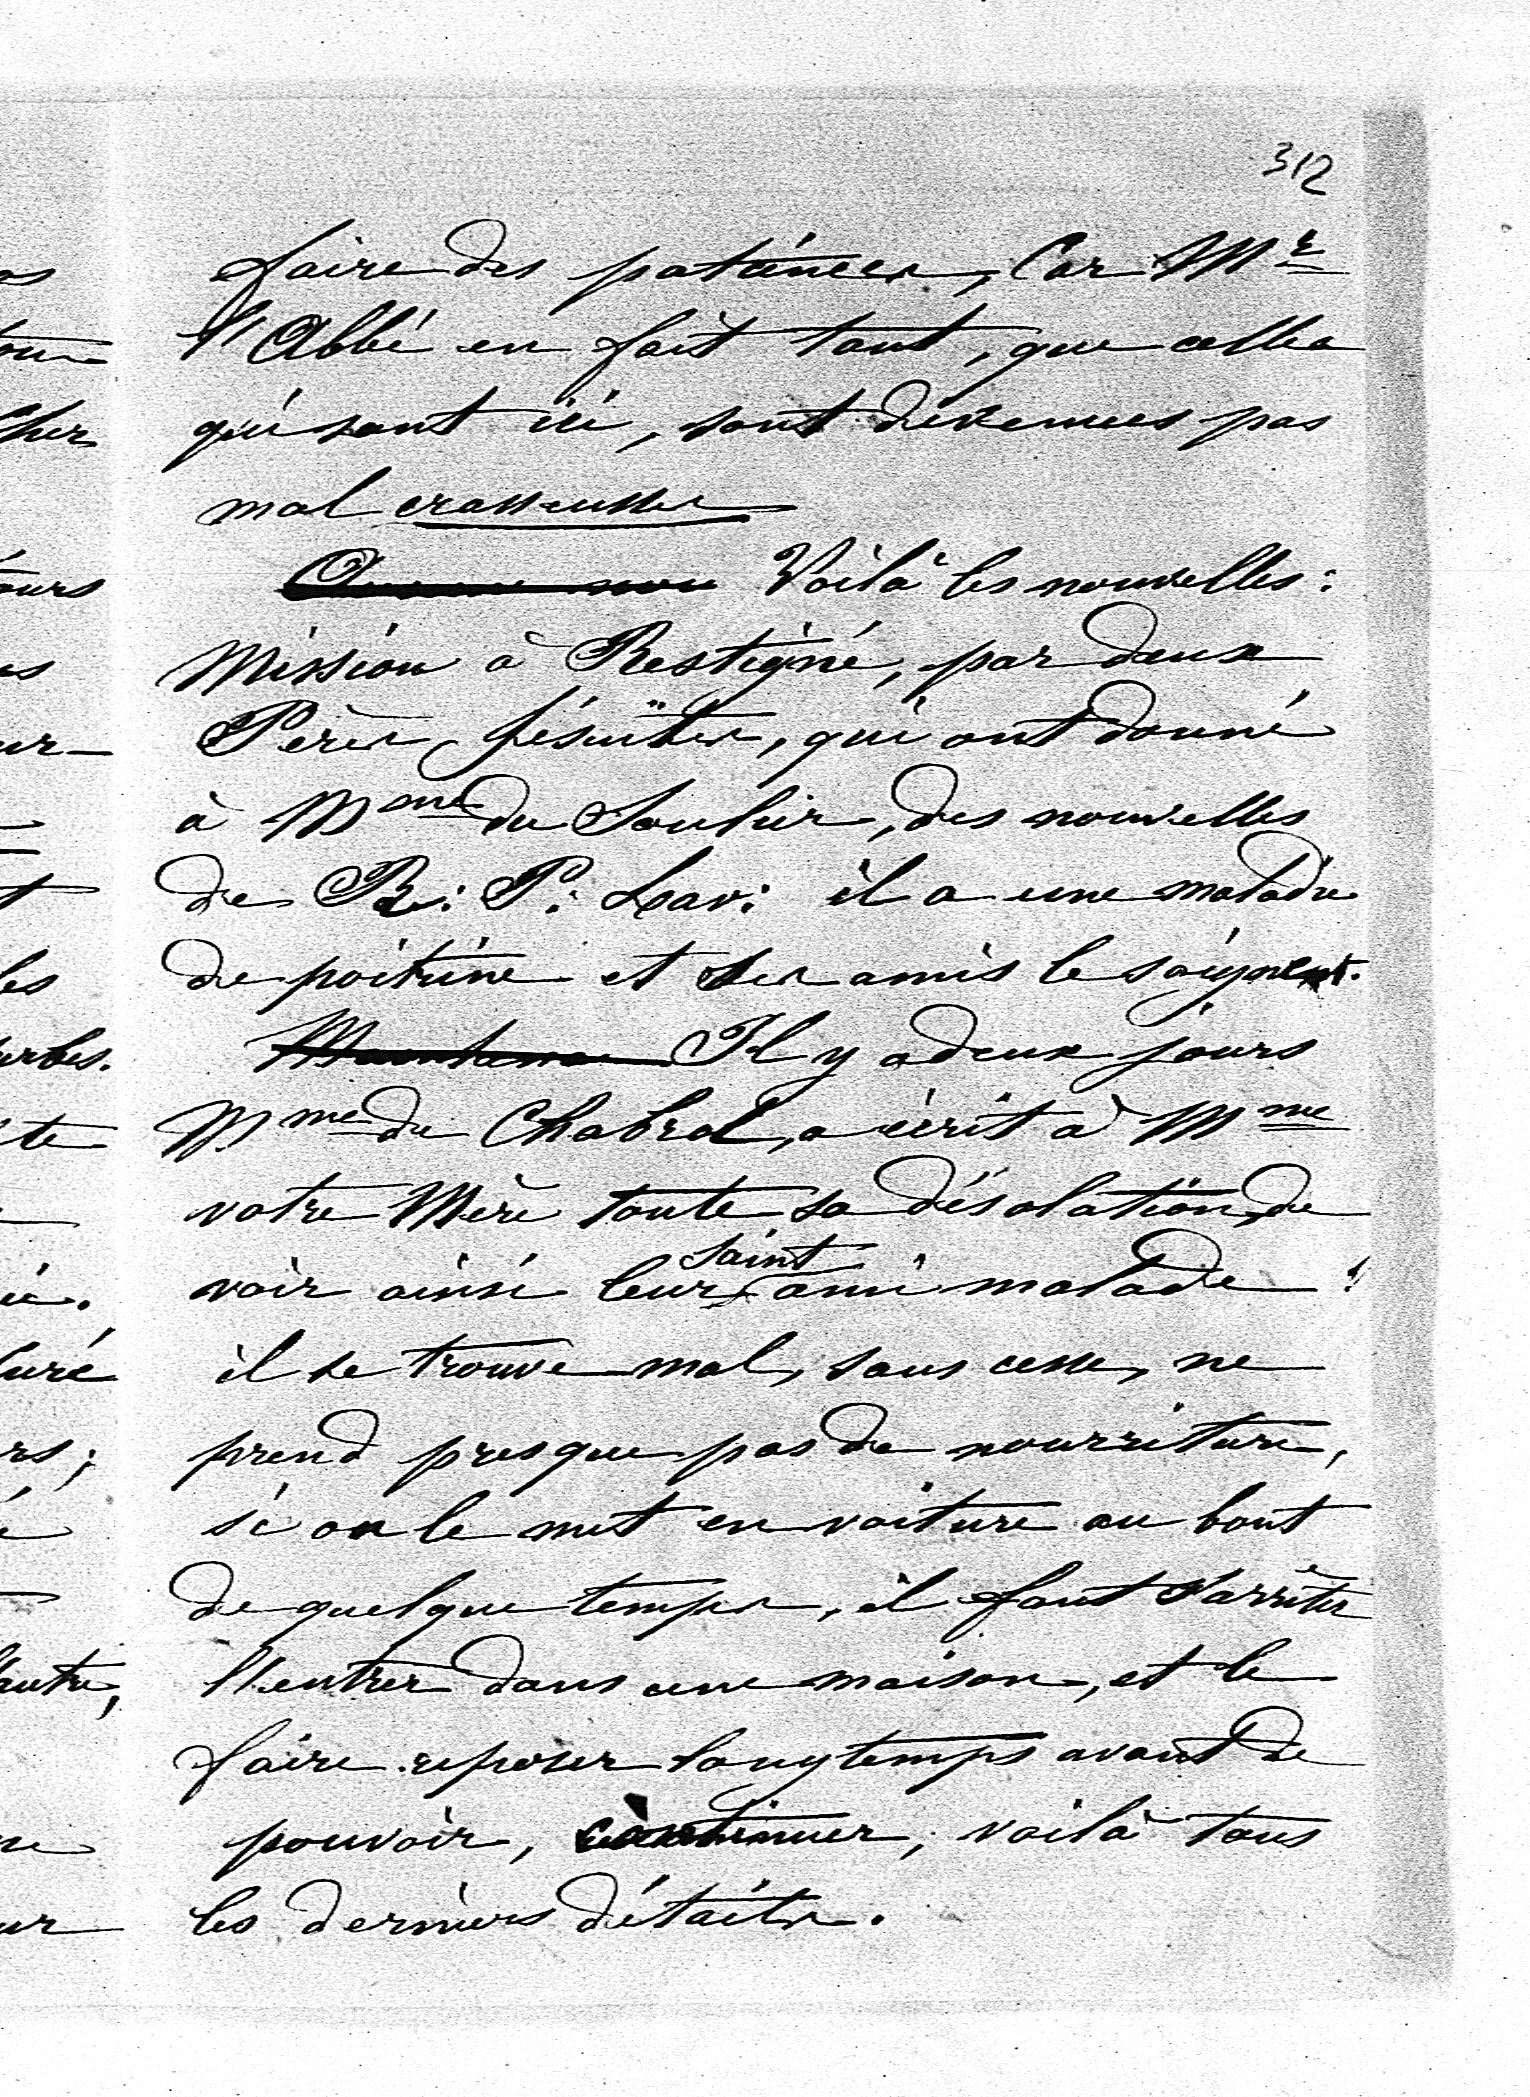 312
faire des patiences, Car Mr
l'Abbé en fait tant, que celles
qui sont ici, sont devenues pas
mal crasseusses
Voilà les nouvelles:
Mission à Restigné, par deux
Pères Jésuites, qui ont donné
à Mme du Soulier, des nouvelles
de R: P: Lav: il a une maladie
de poitrine et ses amis le soignent.
Maintenant Il y a deux jours
Mme de Chabrol, a écrit à Mme
votre Mère toute sa désolation, de
voir ainsi leur saint ami malade!
il se trouve mal, sans cesse, ne
prend presque pas de nourriture,
si on le met en voiture au bout
de quelque temps, il faut s'arrêter
l'entrer dans une maison, et le
faire reposer longtemps avant de
pouvoir, continuer, voilà tous
les derniers détails.